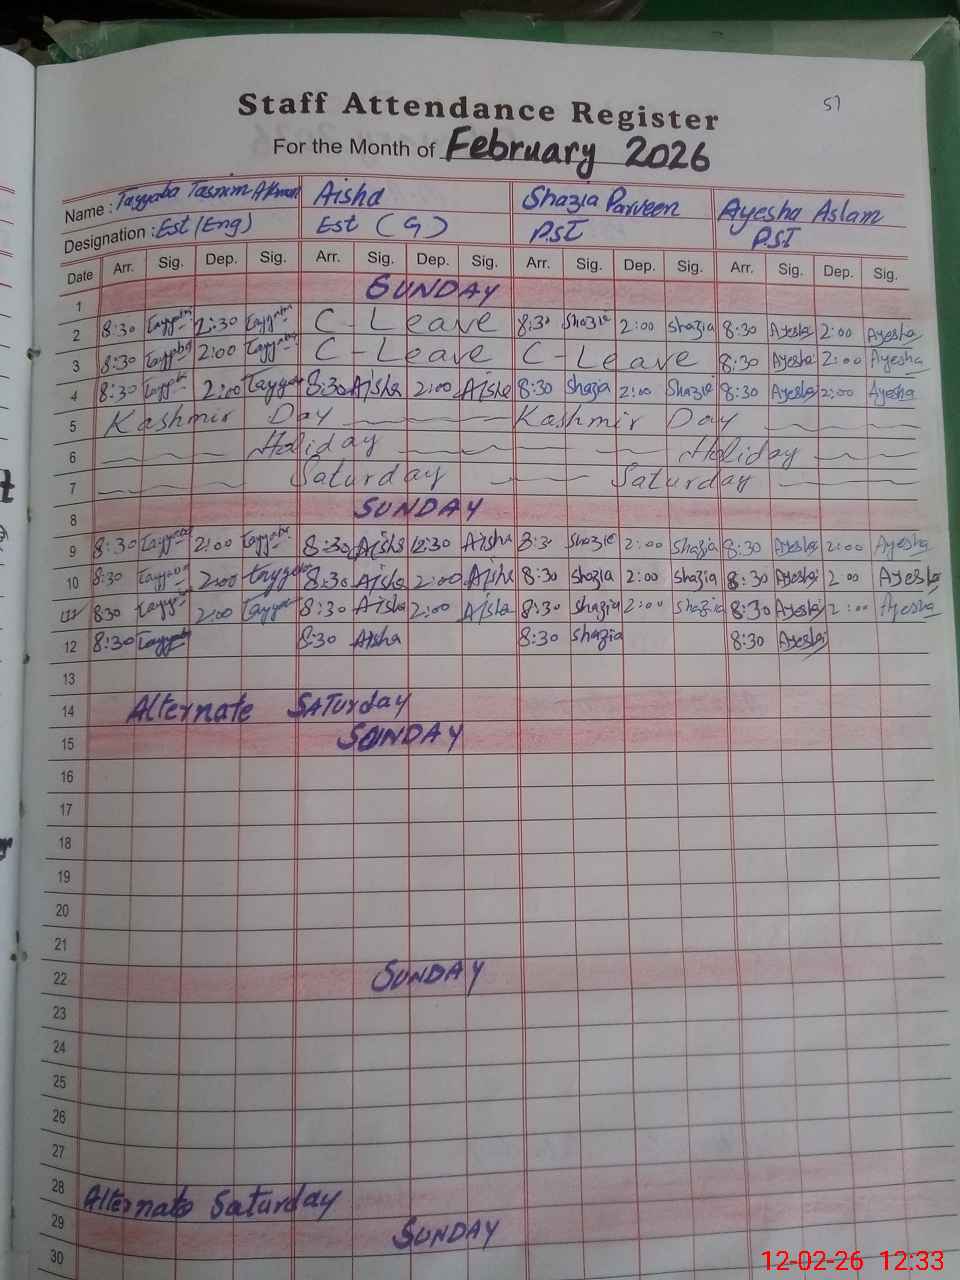 57
Staff Attendance Register
For the Month of February 2026
Name : Tayyaba Tasnim Akman Aisha Shazia Parveen Ayesha Aslam
Designation : Est (Eng) Est (G) PST PST
Date Arr. Sig. Dep. Sig. Arr. Sig. Dep. Sig. Arr. Sig. Dep. Sig. Arr. Sig. Dep. Sig.
1 SUNDAY
2 8:30 Tayyaba 2:30 Tayyaba C - Leave 8:30 Shazia 2:00 Shazia 8:30 Ayesha 2:00 Ayesha
3 8:30 Tayyaba 2:00 Tayyaba C - Leave C - Leave 8:30 Ayesha 2:00 Ayesha
4 8:30 Tayyaba 2:00 Tayyaba 8:30 Aisha 2:00 Aisha 8:30 Shazia 2:00 Shazia 8:30 Ayesha 2:00 Ayesha
5 Kashmir Day Kashmir Day
6 Holiday Holiday
7 Saturday Saturday
8 SUNDAY
9 8:30 Tayyaba 2:00 Tayyaba 8:30 Aisha 2:30 Aisha 8:30 Shazia 2:00 Shazia 8:30 Ayesha 2:00 Ayesha
10 8:30 Tayyaba 2:00 Tayyaba 8:30 Aisha 2:00 Aisha 8:30 Shazia 2:00 Shazia 8:30 Ayesha 2 00 Ayesha
11 8:30 Tayyaba 2:00 Tayyaba 8:30 Aisha 2:00 Aisha 8:30 Shazia 2:00 Shazia 8:30 Ayesha 2:00 Ayesha
12 8:30 Tayyaba 8:30 Aisha 8:30 Shazia 8:30 Ayesha
13
14 Alternate Saturday
15 SUNDAY
16
17
18
19
20
21
22 SUNDAY
23
24
25
26
27
28 Alternate Saturday
29 SUNDAY
30
12-02-26 12:33